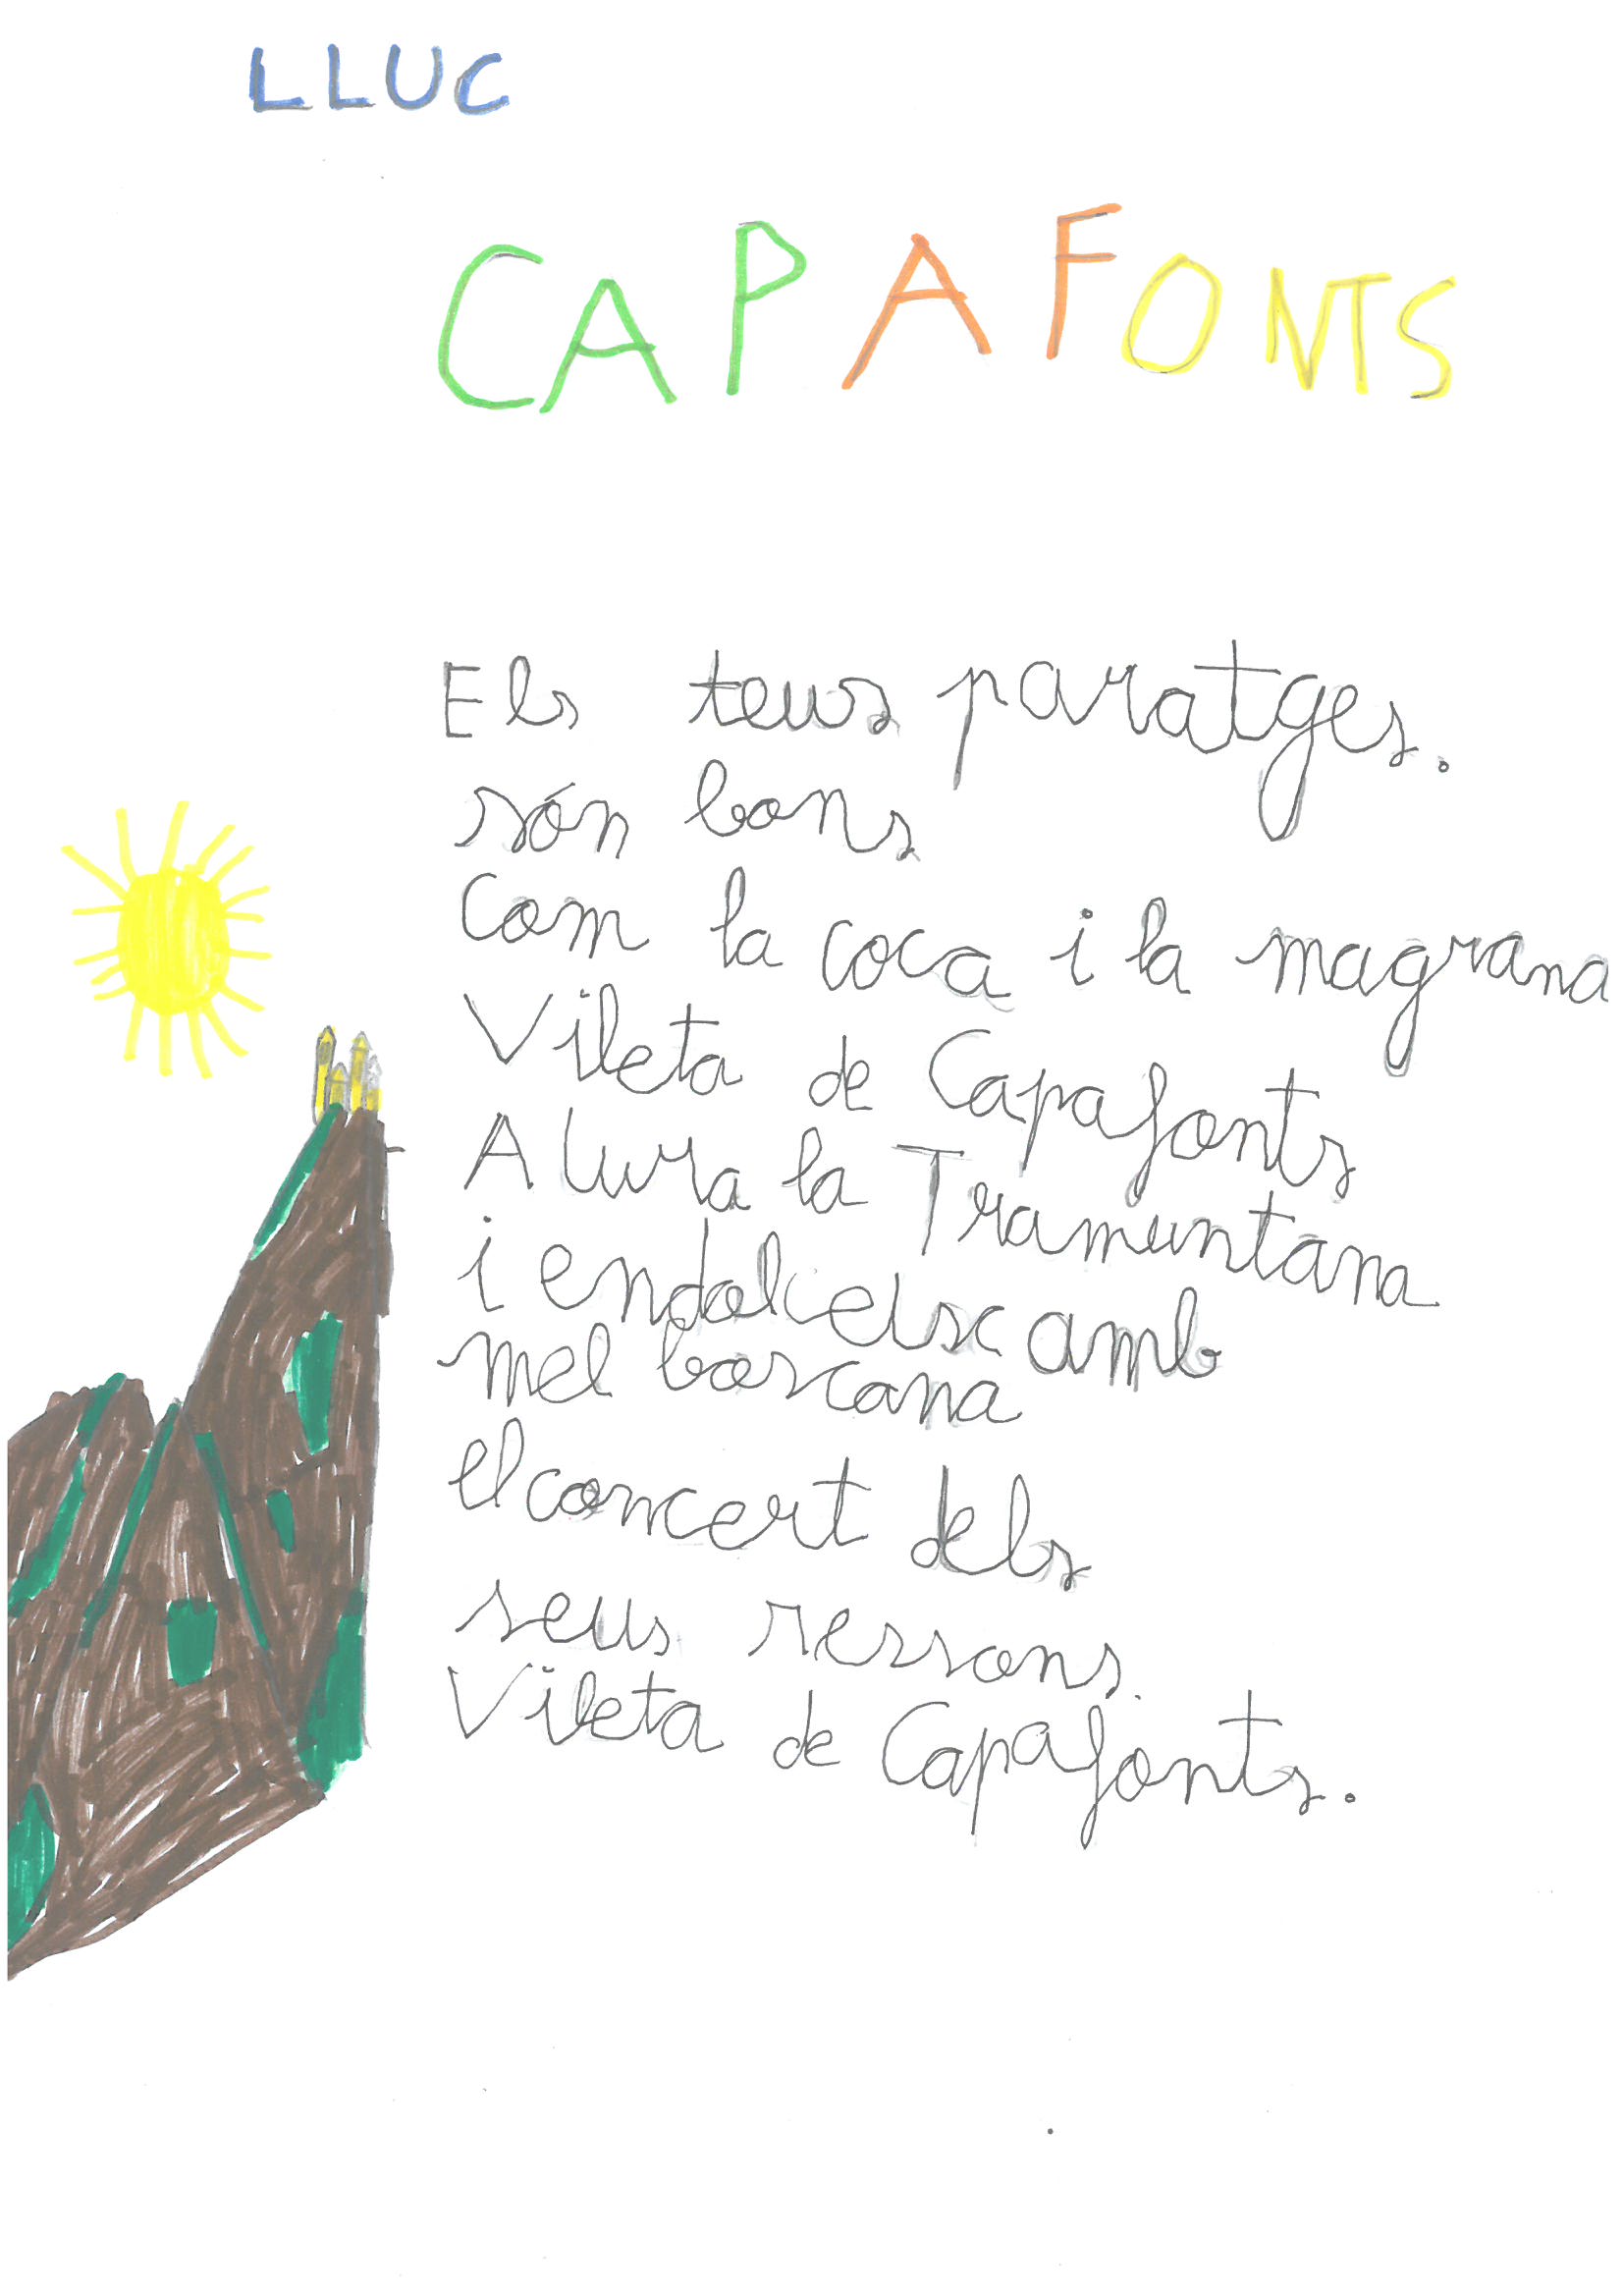 LLUC
CAPAFONTS
Els teus paratges.
són bons
Com la coca i la magrana
Vileta de Capafonts
Alura la Tramuntana
i endolceisc amb
mel boscana
el concert dels
seus ressons.
Vileta de Capafonts.